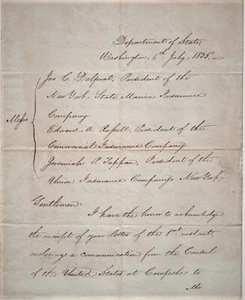 Department of State,
Washington, 6th July, 1835.
Jno. C. Delprat, President of the
New York State Marine Insurance
Company.
Edward A. Russell, President of the
Commercial Insurance Company
Messrs
Jeremiah P. Tappan, President of the
Union Insurance Company, New York.
Gentlemen:
I have the honor to acknowledge
the receipt of your letter of the 1st instant,
enclosing a communication from the Consul
of the United States at Campeche to
Mr